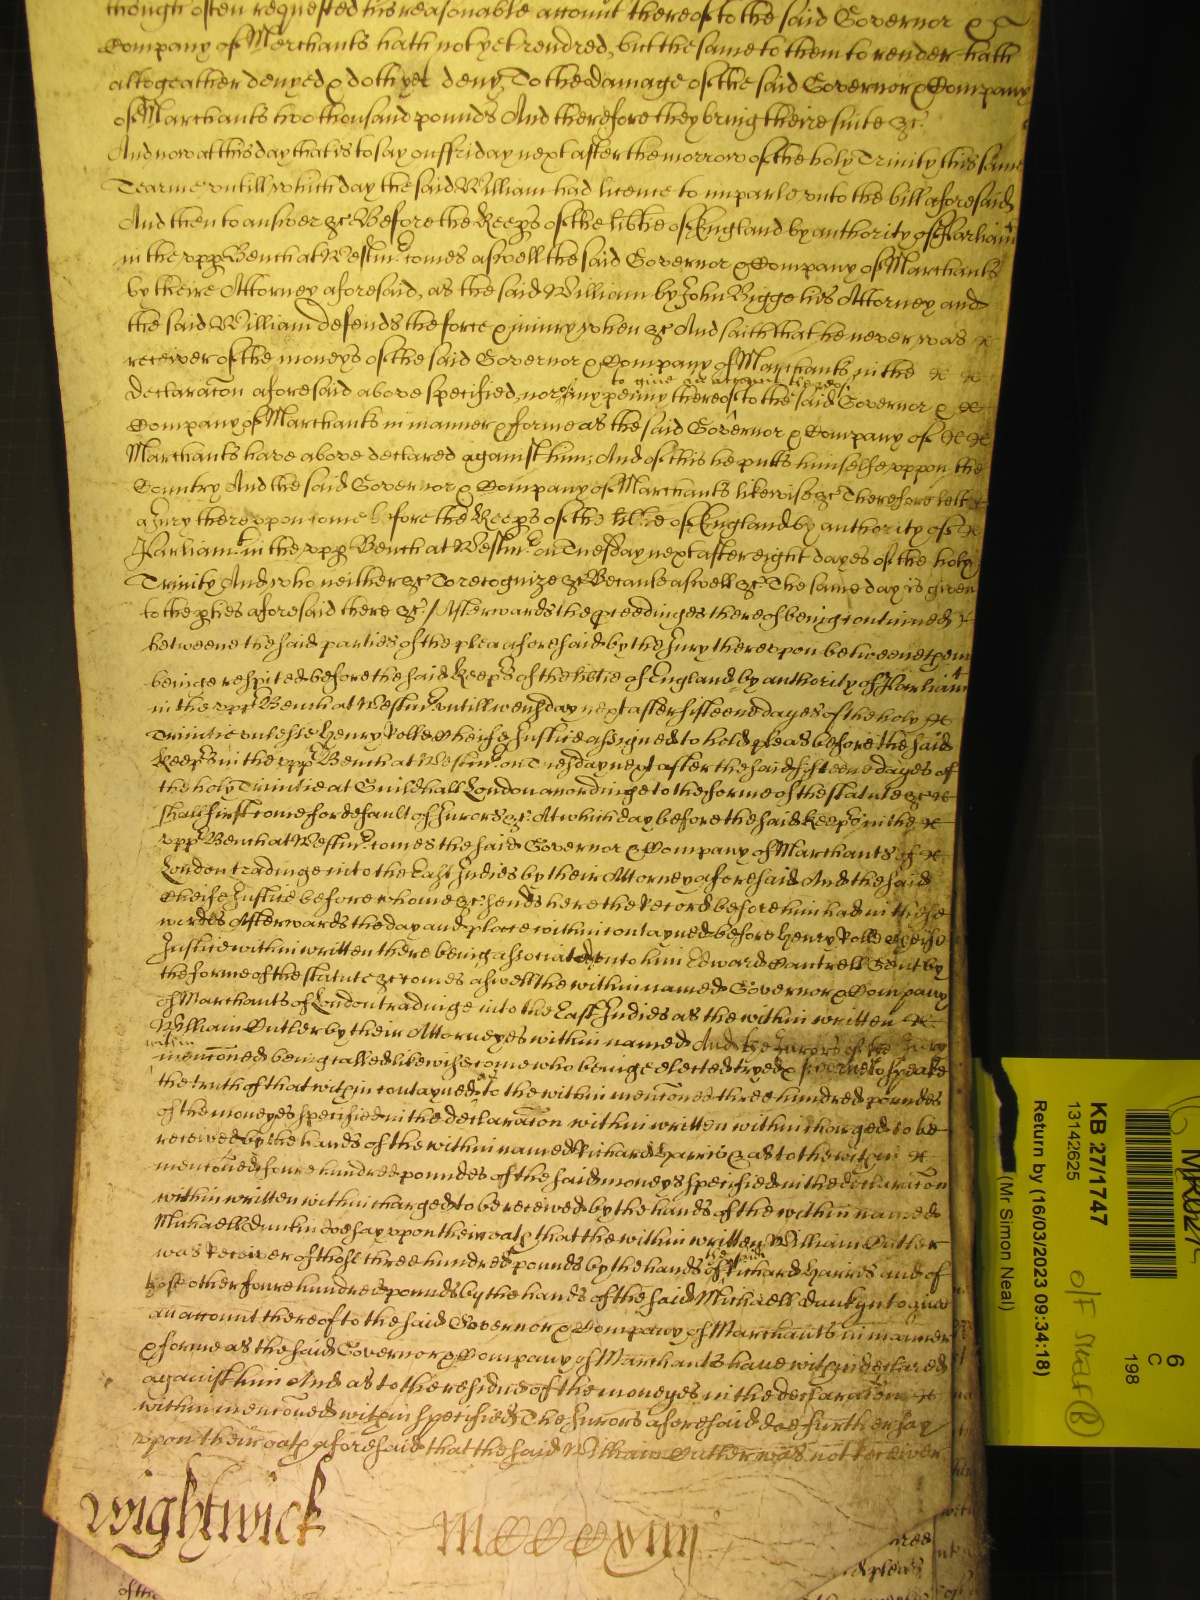 though often requested his reasonable account thereof to the said Governor &
Company of Merchants hath not yet rendred, but the same to them to render hath
altogeather denyed & doth yet deny, To the damage of the said Governor & Company
of Marchants two thousand pounds And therefore they bring theire suite &c.
And now at this day that is to say on ffriday next after the morrow of the holy Trinity this same
Tearme untill which day the said William had licence to imparle unto the bill aforesaid
And then to answer &c Before the Keeps of the libtie of England by authority of Parliam
in the upp Bench at Westm. comes aswell the said Governor & Company of Marchants
by theire Attorney aforesaid, as the said William by John Bigge his Attorney and
the said William defends the force & iniury when &c And saith that he never was
receiver of the moneys of the said Governor & Company of Marchants in the &c &c
to give an account thereof
declaracon aforesaid above specified, nor any penny thereof to the said Governor & &c
Company of Marchants in manner & forme as the said Governor & Company of &c &c
Marchants have above declared against him; And of this he putts himselfe uppon the
Country And the said Governor & Company of Marchants likewise &c Therefore lett
a Jury thereuppon come before the Keeps of the libtie of England by authority of
Parliamt in the upp Bench at Westm. on Tuesday next after eight dayes of the holy
Trinity And who neither &c To recognize &c Because aswell &c The same day is given
to the pties aforesaid there &c / Afterwards the pceedinges thereof being continued
betweene the said parties of the plea aforesaid by the Jury thereupon betweene them
beinge respited before the said Keeps of the libtie of England by authority of Parliamt
in the upp Bench at Westm. untill wensday next after fifteene dayes of the holy &c
Trinitie unlesse Henry Rolle Cheife Justice assigned to hold pleas before the said
Keeps in the upp Bench at Westm. on Tuesday next after the said fifteene dayes of
the holy Trinitie at Guildhall London accordinge to the forme of the statute &c
shall first come for default of Jurors &c. At which day before the said Keeps in the
upp Bench at Westm. comes the said Governor & Company of Marchants of
London tradinge into the East Indies by their Attorney aforesaid And the said
Cheife Justice before whome &c sends here the Record before him had in these
wordes Afterwards the day and place within contayned before Henry Rolle Cheife
Justice within written there being associated unto him Edward Cantrell Gent by
the forme of the statute &c comes aswell the within named Governor & Company
of Marchants of London tradinge into the East Indies as the within written
William Cutler by their Attorneyes within named And the Jurors of the Jury
within
mencioned being called likewise come who beinge elected tryed & sworne to speake
the truth of that within contayned as to the within mencioned three hundred poundes
of the moneyes specified in the declaracon within written within charged to be
received by the hands of the within named Richard Harris & as to the within
mencioned foure hundred poundes of the said moneys specified in the declaracon
within written within charged to be received by the hands of the within named
Michaell Dunkin doe say upon their oath that the within written William Cutler
the said
was Receiver of those three hundred pounds by the hands of Richard Harris and of
those other foure hundred pounds by the hands of the said Michaell Dunkyn to give
an account thereof to the said Governor & Company of Marchants in manner
& forme as the said Governor & Company of Marchants have within declared
against him And as to the residue of the moneyes in the declaracon
within mencioned within specified The Jurors aforesaid doe further say
upon their oath aforesaid that the said William Cutler was not Receiver
Wightwick
KB 27/1747
13142625
Return by (16/03/2023 09:34:18)
(Mr Simon Neal)
6
C
198